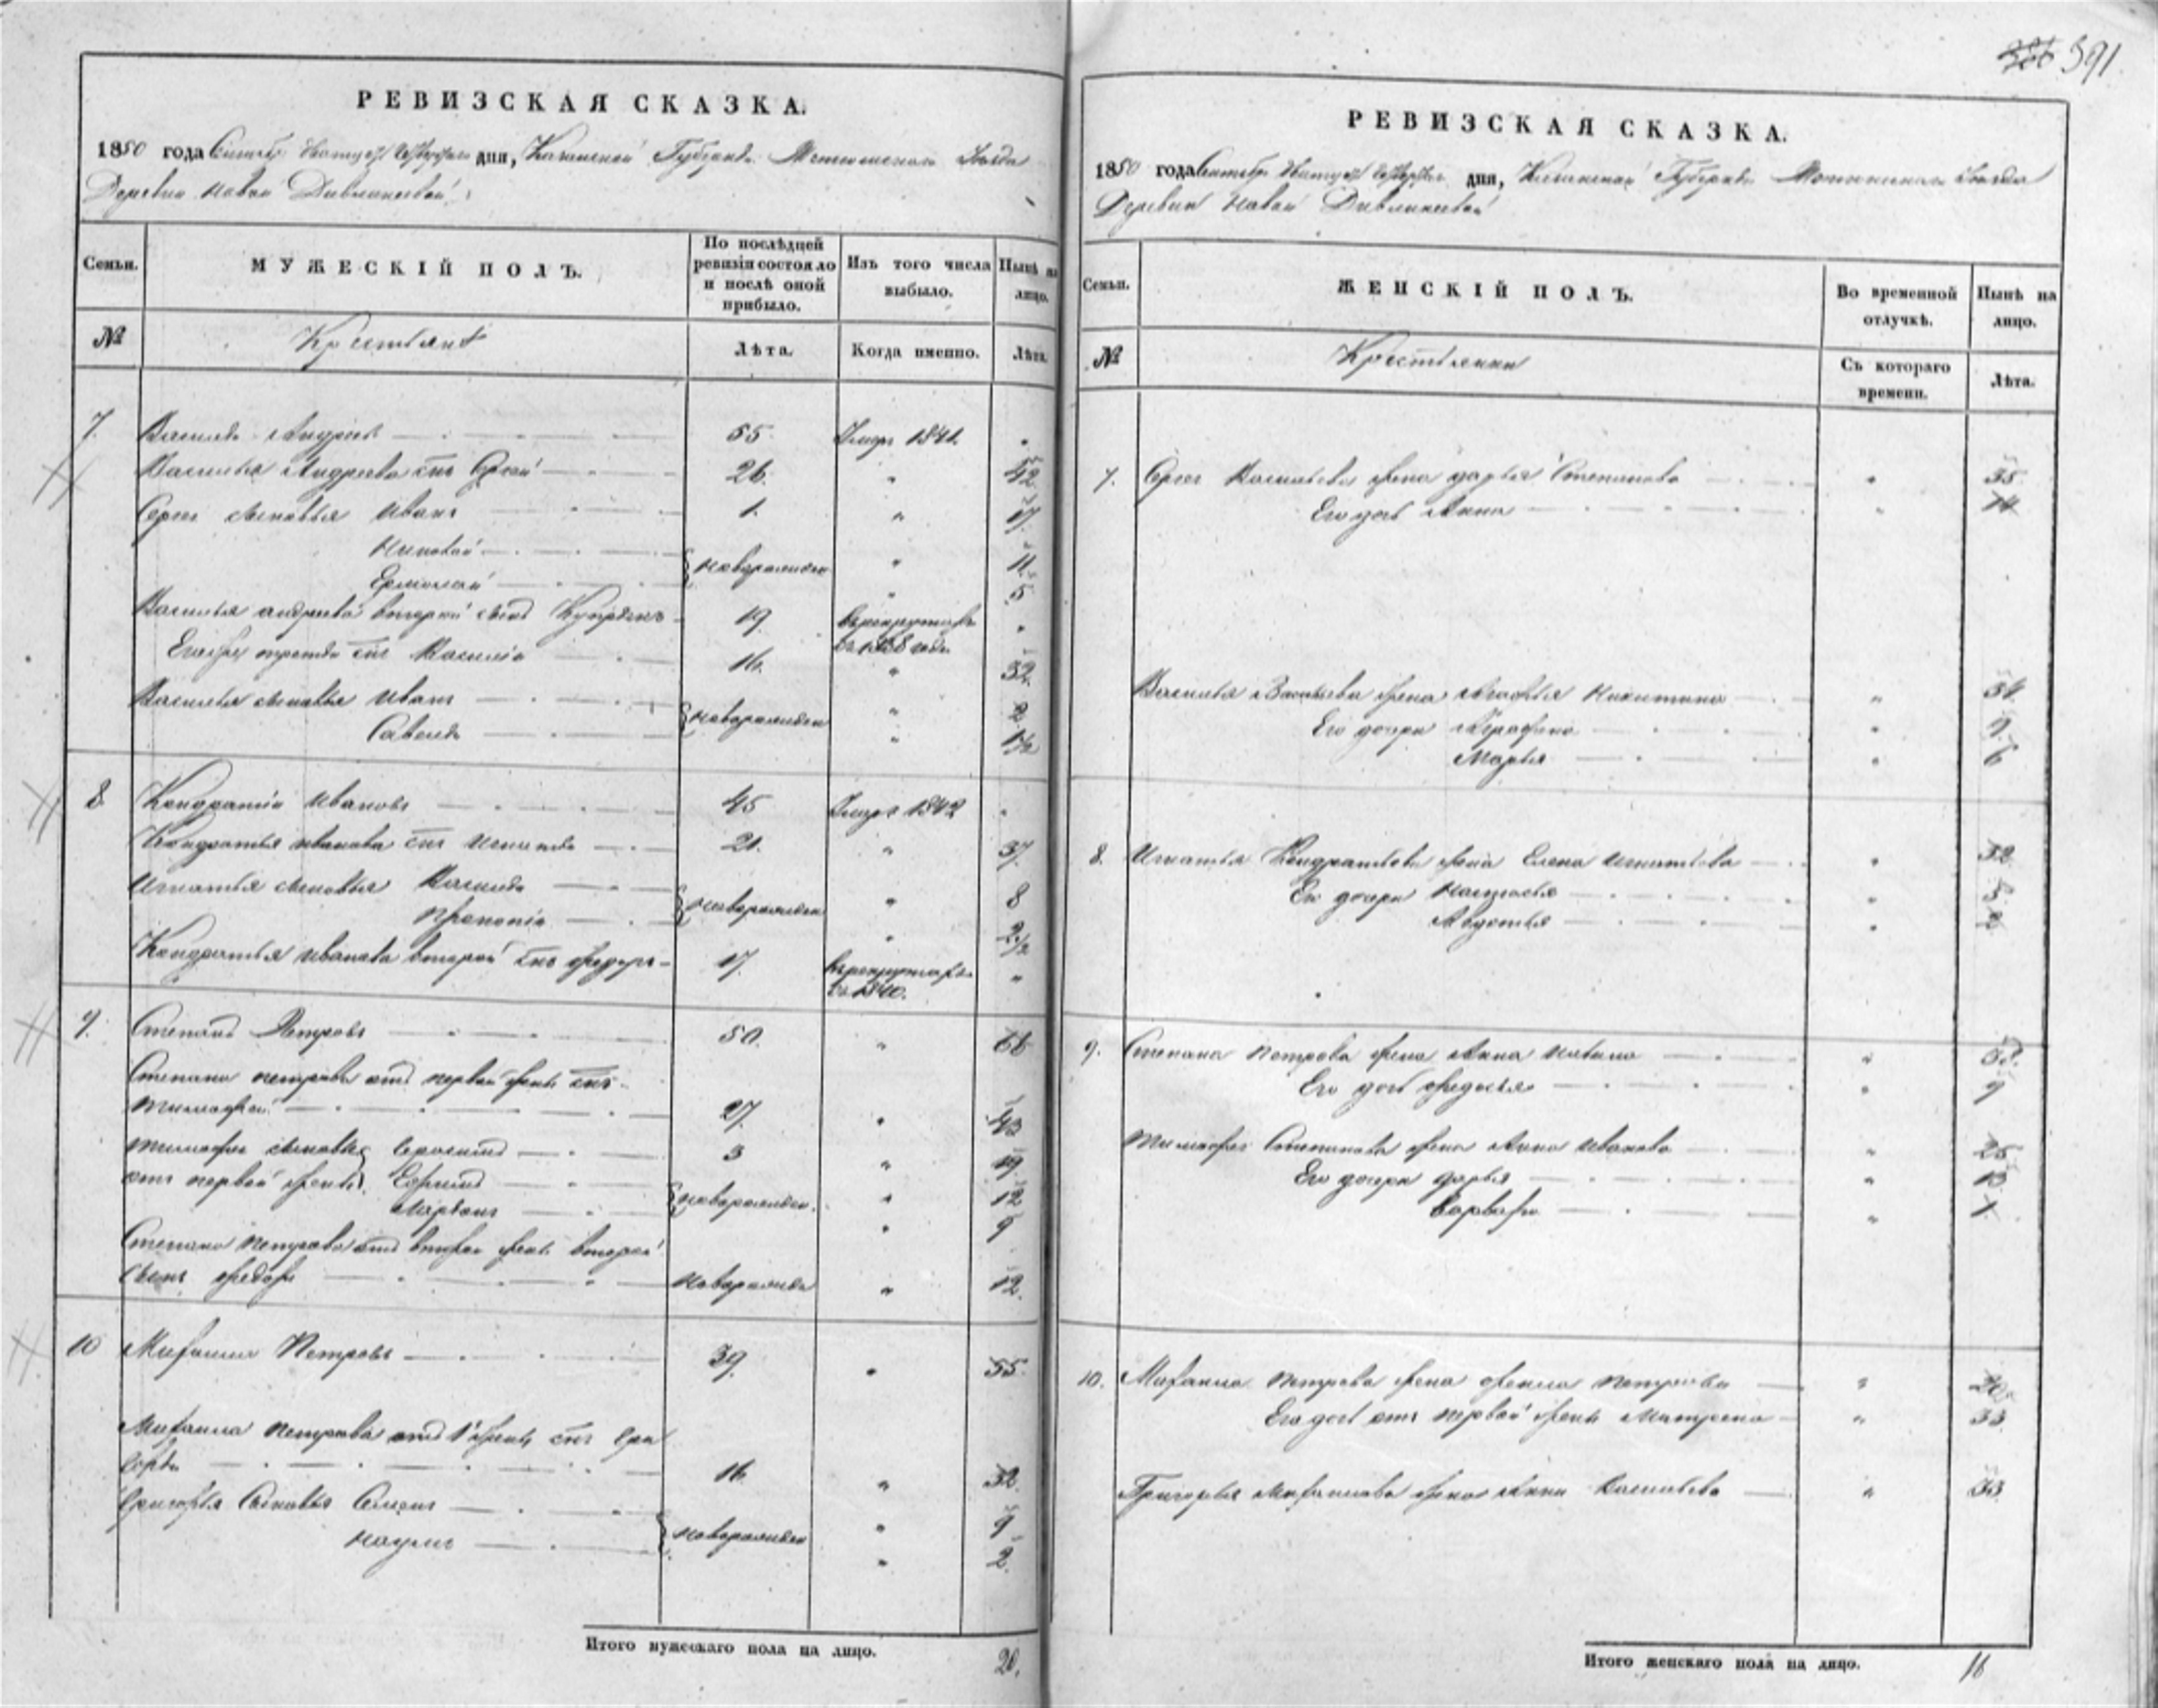 391
РЕВИЗСКАЯ СКАЗКА.
1850 года Сентября дня, Казанской Губернии Уезда
Деревни Новой
Семьи. МУЖЕСКІЙ ПОЛЪ. По послѣдней ревизіи состояло и послѣ оной прибыло. Изъ того числа выбыло. Нынѣ на лицо.
№ Крестьяне Лѣта. Когда именно. Лѣта.
7. Василій Андреевъ 55 Умеръ 1841.
Василья Андреева сынъ Сергей 26. " 42
Сергея сыновья Иванъ 1. " 17
новорожден " 11.
Ермолай " 5
Василья андреева второй сынъ 19. в рекрутахъ
в 1838 годе
Его же третій сынъ Василій 16. " 32.
Василья сыновья Иванъ новорожден " 2
Савелій " 1½
8 Кондратій Ивановъ 45 Умеръ 1842
Кондратья иванова сынъ Игнатій 21. " 37.
Игнатья сыновья Василій новорожден " 8
Прокопій " 2½
Кондратья иванова второй сынъ федоръ 17. в рекрутахъ "
в 1840.
9. Степанъ Петровъ 50. " 66
Степана петрова отъ первой жены сынъ
тимофей 27. " 43
тимофея сыновья 3 " 19
отъ первой жены Ефимъ новорожден. " 12
" 9
Степана петрова отъ второй жены второй
сынъ федоръ новорожден " 12.
10 Михаило Петровъ 39. " 55.
Михаила петрова отъ 1й жены сынъ Гри
горій 16. " 32.
Григорья Сыновья Семенъ новорожден " 9
наумъ " 2.
Итого мужескаго пола на лицо. 20.
РЕВИЗСКАЯ СКАЗКА.
1850 года Сентября дня, Казанской Губернии Уезда
Деревни Новой
Семьи. ЖЕНСКІЙ ПОЛЪ. Во временной отлучкѣ. Нынѣ на лицо.
№ Крестьянки Съ котораго времени. Лѣта.
7. Сергея Васильева жена дарья Степанова " 35
Его дочь Анна " 14
Василья Васильева жена Агафья Никитина " 34
Его дочери Аграфена " 9
Марья " 6
8. Игнатья Кондратьева жена Елена Игнатьева " 32
Его дочери настасья " 5
Авдотья " 2
9. Степана петрова жена Анна "
Его дочь федосья " 9
тимофея Степанова жена Анна Иванова " 25
Его дочери дарья " 13
варвара " 1
10. Михаила петрова жена петрова "
Его дочь отъ первой жены Матрена " 33
Григорья Михаилова жена Анна Васильева " 33
Итого женскаго пола на лицо. 16